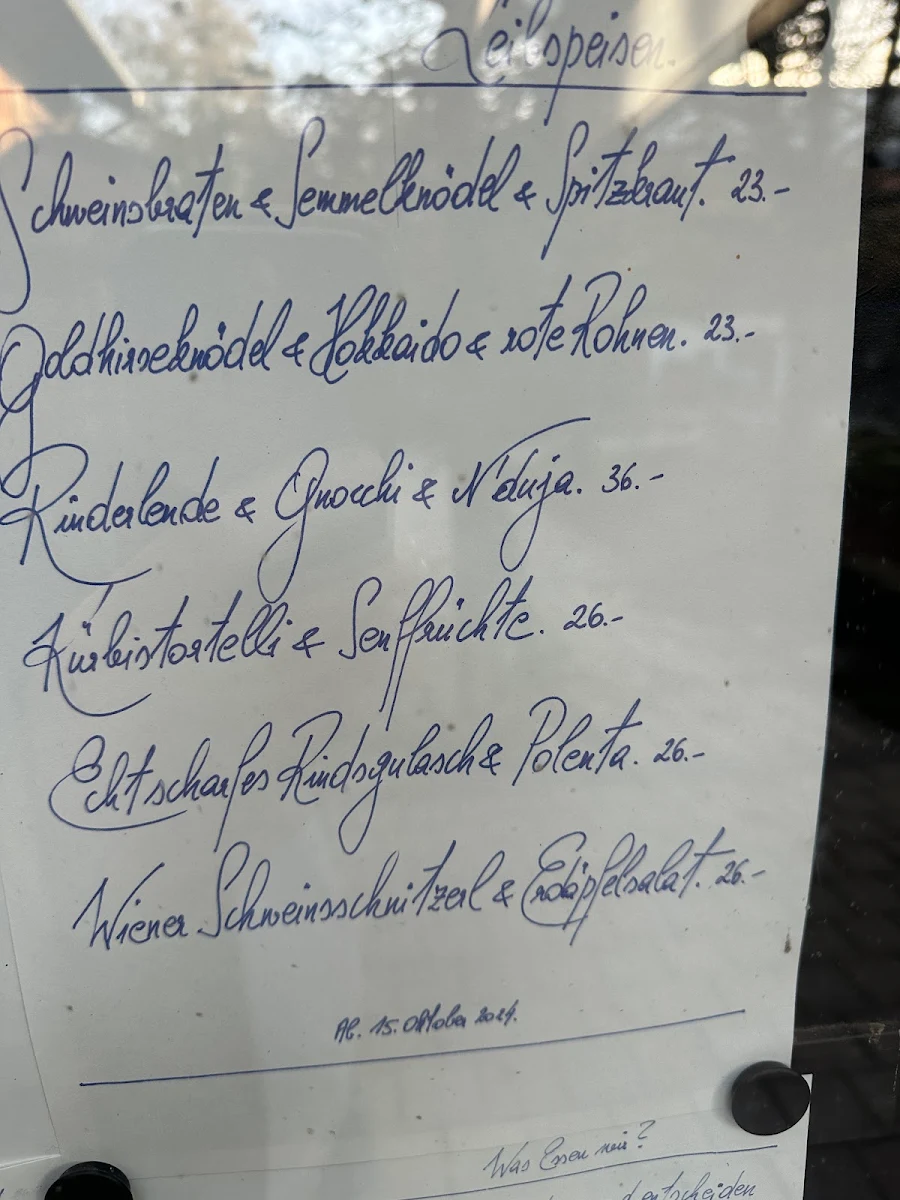 Leibspeisen.
Schweinsbraten & Semmelknödel & Spitzkraut. 23.-
Goldhirseknödel & Hokkaido & rote Rohnen. 23.-
Rinderlende & Gnocchi & N'duja. 36.-
Kürbistortelli & Senffrüchte. 26.-
Echt scharfes Rindsgulasch & Polenta. 26.-
Wiener Schweinsschnitzerl & Erdäpfelsalat. 26.-
Ab. 15. Oktober 2024.
Was Essen wir?
entscheiden